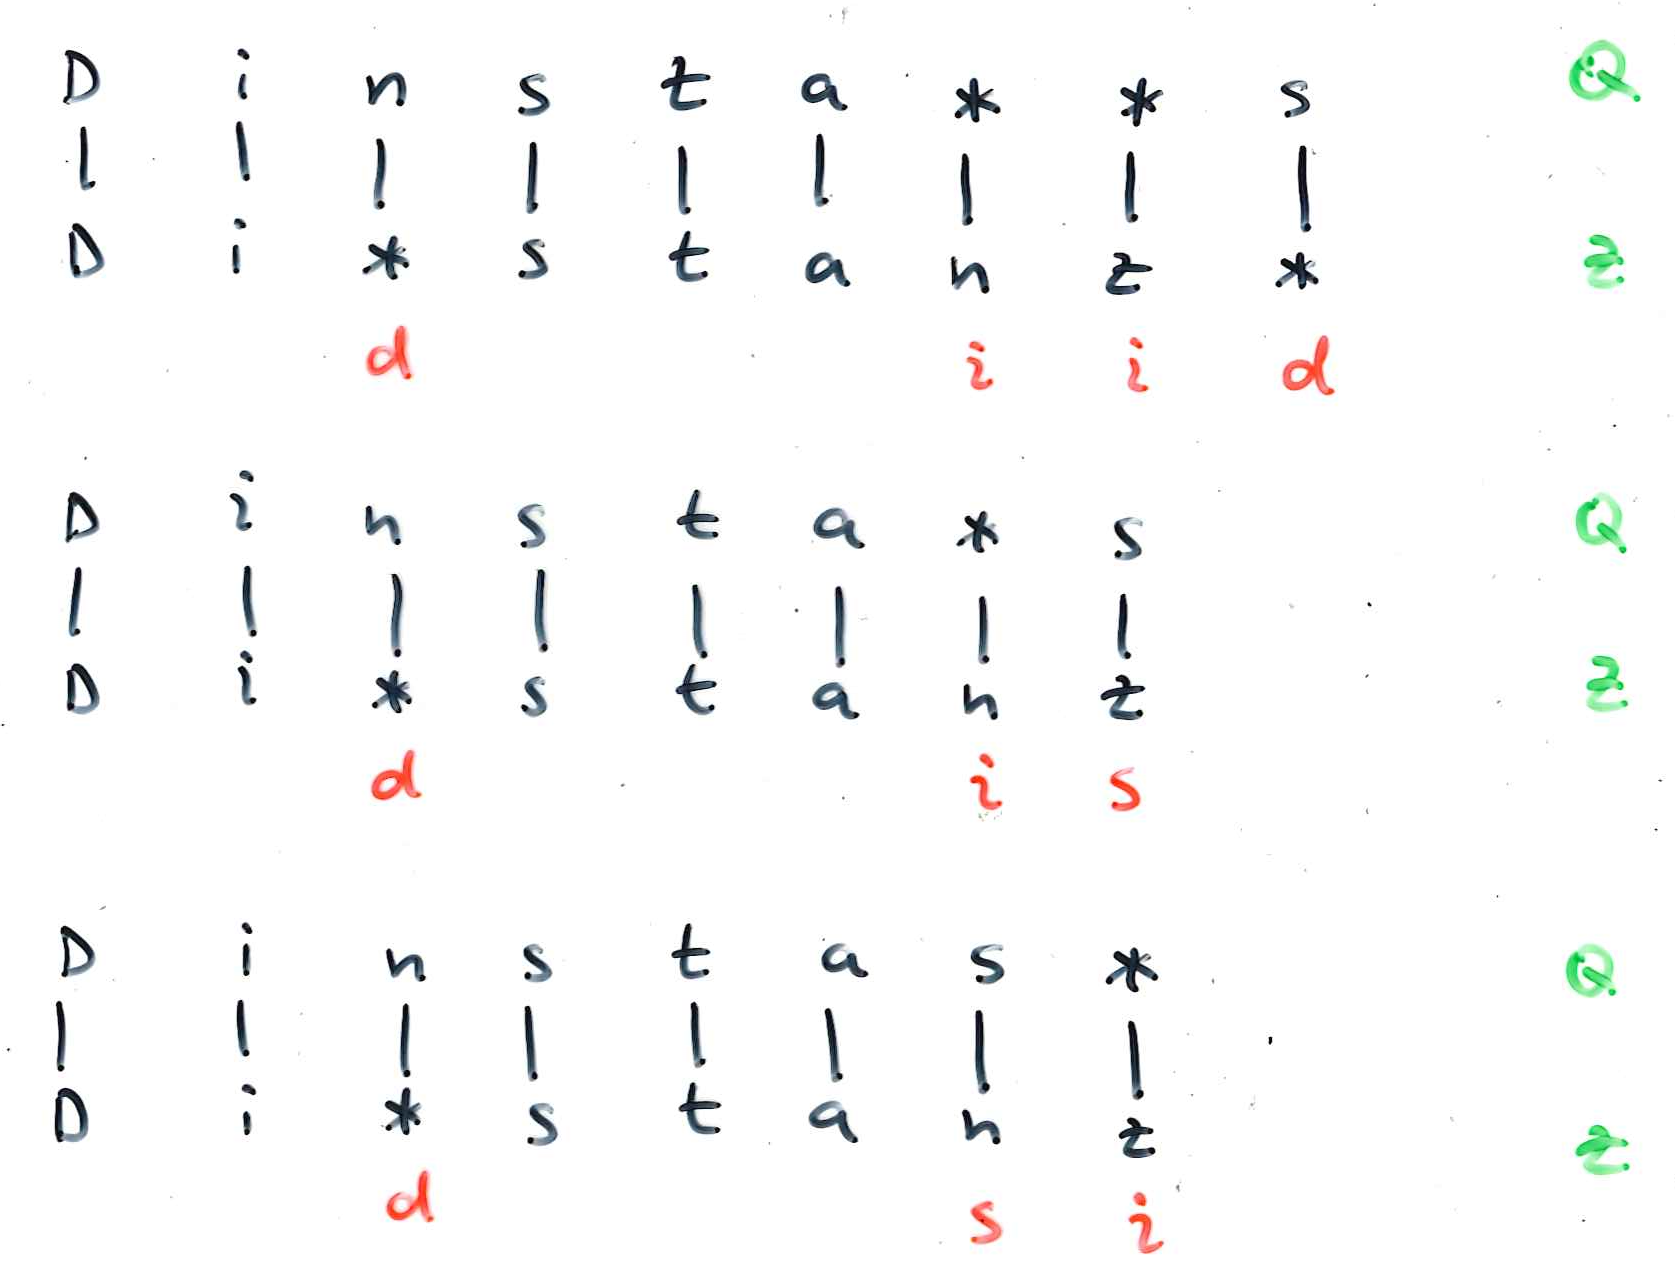 D i n s t a * * s Q
| | | | | | | | |
D i * s t a n z * Z
d i i d
D i n s t a * s Q
| | | | | | | |
D i * s t a n z Z
d i s
D i n s t a s * Q
| | | | | | | |
D i * s t a n z Z
d s i